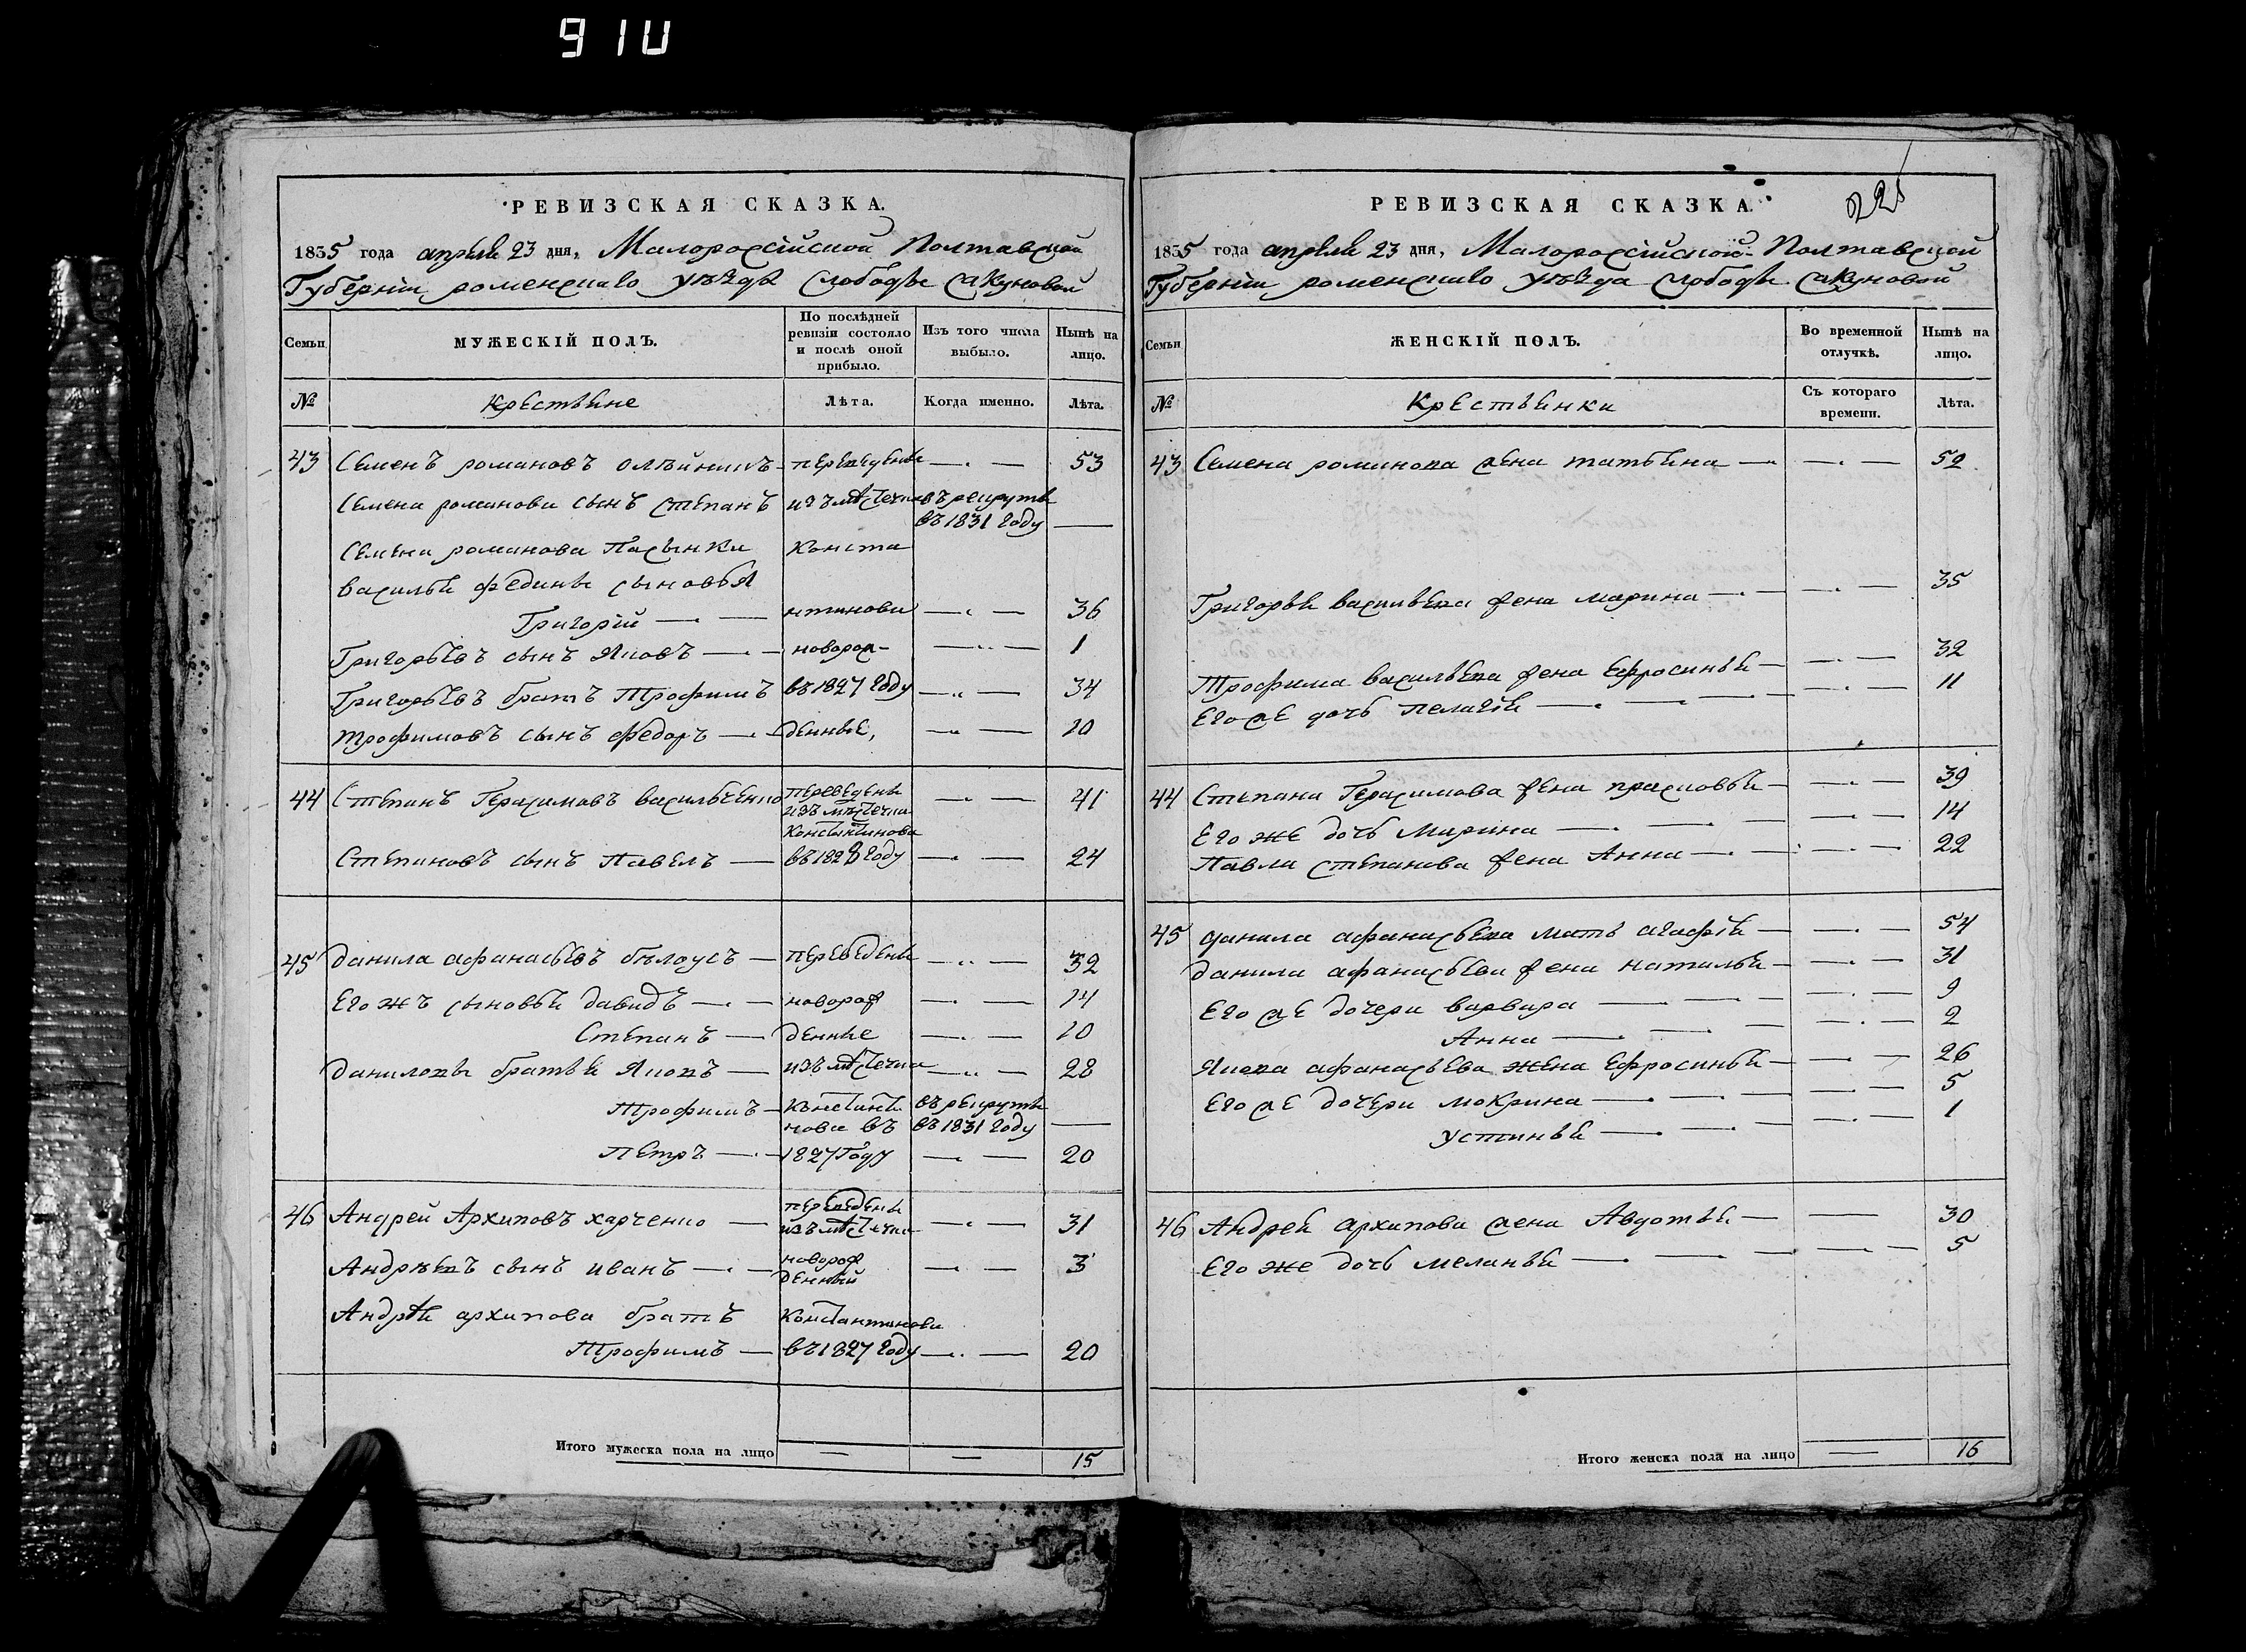 910
РЕВИЗСКАЯ СКАЗКА.
1835 года апреля 23 дня, Малороссійской Полтавской
Губерніи роменскаго уѣзда слободы сакуновой
Семьи
МУЖЕСКІЙ ПОЛЪ.
По послѣдней ревизіи состояло и послѣ оной прибыло.
Изъ того числа выбыло.
Нынѣ на лицо.
№
крестьяне
Лѣта.
Когда именно.
Лѣта.
43 Семенъ романовъ олѣйникъ переведены 53
Семена романова сынъ степанъ изъ мѣстечка въ рекруты
въ 1831 году
семена романова Пасынки конста
василья федины сыновья
Григорій нтинова 36
Григорьевъ сынъ яковъ новорож- 1
Григорьевъ братъ Трофимъ въ 1827 году 34
трофимовъ сынъ федоръ денные, 10
44 степанъ Герасимовъ васильченко переведены 41
изъ мѣстечка
Константинова
степановъ сынъ павелъ въ 1828 году 24
45 данила афанасьевъ бѣлоусъ переведены 32
его жъ сыновья давидъ новорож 14
степанъ денные 10
даниловы братья яковъ изъ мѣстечка 28
Трофимъ константи въ рекруты
нова въ въ 1831 году
петръ 1827 Году 20
46 Андрей Архиповъ харченко переведены 31
изъ мѣстечка
Андрѣевъ сынъ иванъ новорож 3
денный
Андрѣя архипова братъ Константинова
Трофимъ въ 1827 году 20
Итого мужеска пола на лицо 15
РЕВИЗСКАЯ СКАЗКА.
225
1835 года апреля 23 дня, Малороссійской Полтавской
Губерніи роменскаго уѣзда слободы сакуновой
Семьи
ЖЕНСКІЙ ПОЛЪ.
Во временной отлучкѣ.
Нынѣ на лицо.
№
крестьянки
Съ котораго времени.
Лѣта.
43 Семена романова жена татьяна 52
Григорья васильева жена марина 35
Трофима васильева жена Ефросинья 32
его же дочь пелагія 11
44 Степана Герасимова жена прасковья 39
Его же дочь марина 14
Павла степанова жена Анна 22
45 данила афанасьева мать агафія 54
данила афанасьева жена наталья 31
его же дочери варвара 9
Анна 2
якова афанасьева жена Ефросинья 26
его же дочери мокрина 5
устинья 1
46 Андрея архипова жена Авдотья 30
Его же дочь меланья 5
Итого женска пола на лицо 16